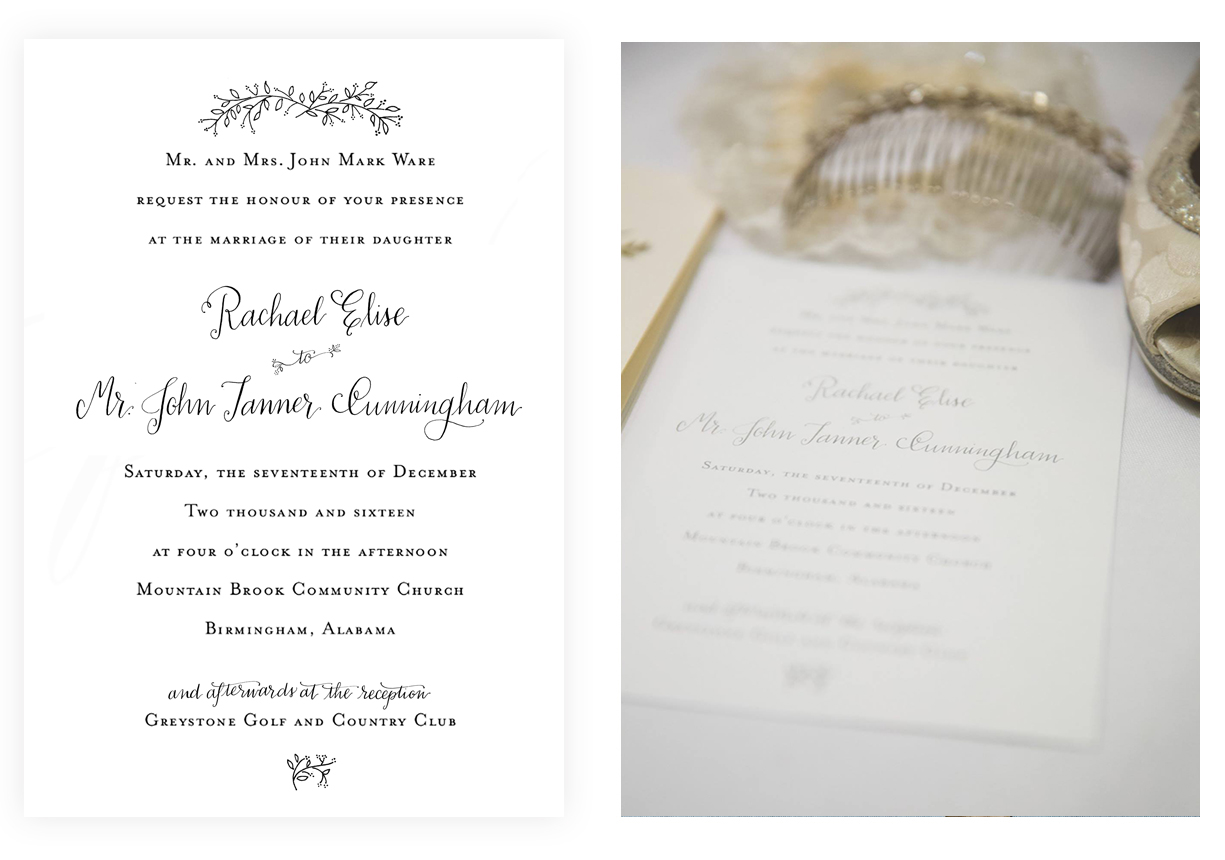 Mr. and Mrs. John Mark Ware
request the honour of your presence
at the marriage of their daughter
Rachael Elise
to
Mr. John Tanner Cunningham
Saturday, the seventeenth of December
Two thousand and sixteen
at four o'clock in the afternoon
Mountain Brook Community Church
Birmingham, Alabama
and afterwards at the reception
Greystone Golf and Country Club
Mr. and Mrs. John Mark Ware
request the honour of your presence
at the marriage of their daughter
Rachael Elise
to
Mr. John Tanner Cunningham
Saturday, the seventeenth of December
Two thousand and sixteen
at four o'clock in the afternoon
Mountain Brook Community Church
Birmingham, Alabama
and afterwards at the reception
Greystone Golf and Country Club